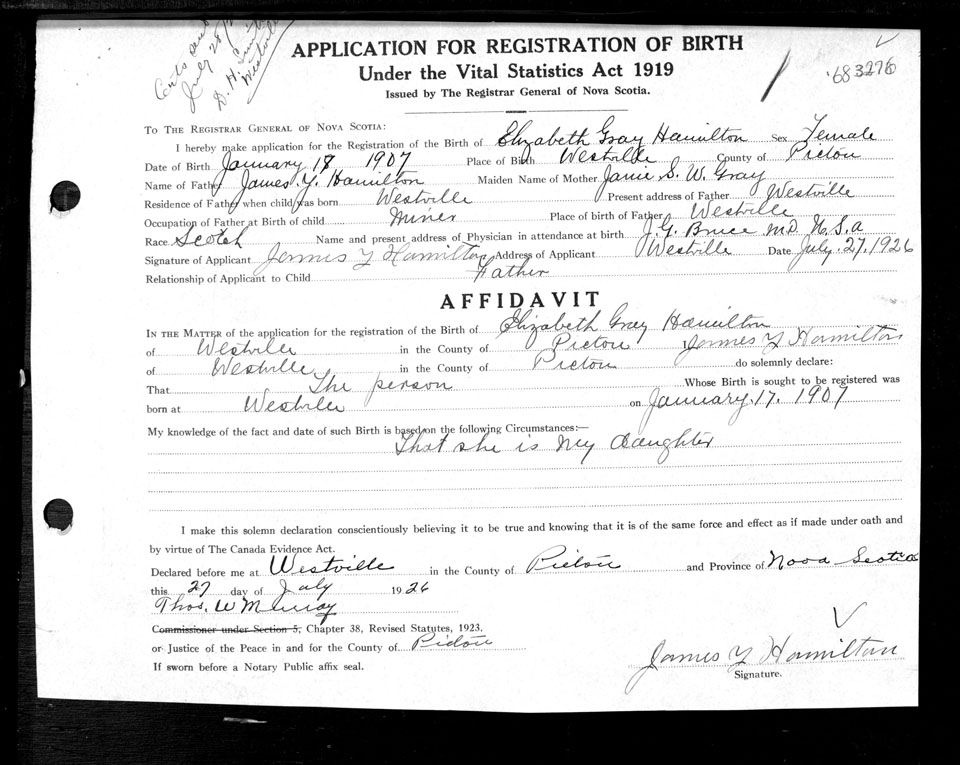 Certs sent
July 28/
D. H. Smith
Westville
APPLICATION FOR REGISTRATION OF BIRTH
Under the Vital Statistics Act 1919
Issued by The Registrar General of Nova Scotia.
683276
TO THE REGISTRAR GENERAL OF NOVA SCOTIA:
I hereby make application for the Registration of the Birth of Elizabeth Gray Hamilton Sex Female
Date of Birth January 17 1907 Place of Birth Westville County of Pictou
Name of Father James Y. Hamilton Maiden Name of Mother Janie S. W. Gray
Residence of Father when child was born Westville Present address of Father Westville
Occupation of Father at Birth of child Miner Place of birth of Father Westville
Race Scotch Name and present address of Physician in attendance at birth J. G. Bruce M.D. U.S.a
Signature of Applicant James Y Hamilton Address of Applicant Westville Date July. 27. 1926
Relationship of Applicant to Child Father
AFFIDAVIT
IN THE MATTER of the application for the registration of the Birth of Elizabeth Gray Hamilton
of Westville in the County of Pictou I James Y Hamilton
of Westville in the County of Pictou do solemnly declare:
That The person Whose Birth is sought to be registered was
born at Westville on January. 17. 1907
My knowledge of the fact and date of such Birth is based on the following Circumstances:—
That she is My Daughter
I make this solemn declaration conscientiously believing it to be true and knowing that it is of the same force and effect as if made under oath and
by virtue of The Canada Evidence Act.
Declared before me at Westville in the County of Pictou and Province of Nova Scotia
this 27 day of July 1926
Thos. W Murray
Commissioner under Section 5, Chapter 38, Revised Statutes, 1923.
or Justice of the Peace in and for the County of Pictou
If sworn before a Notary Public affix seal.
James Y Hamilton
Signature.